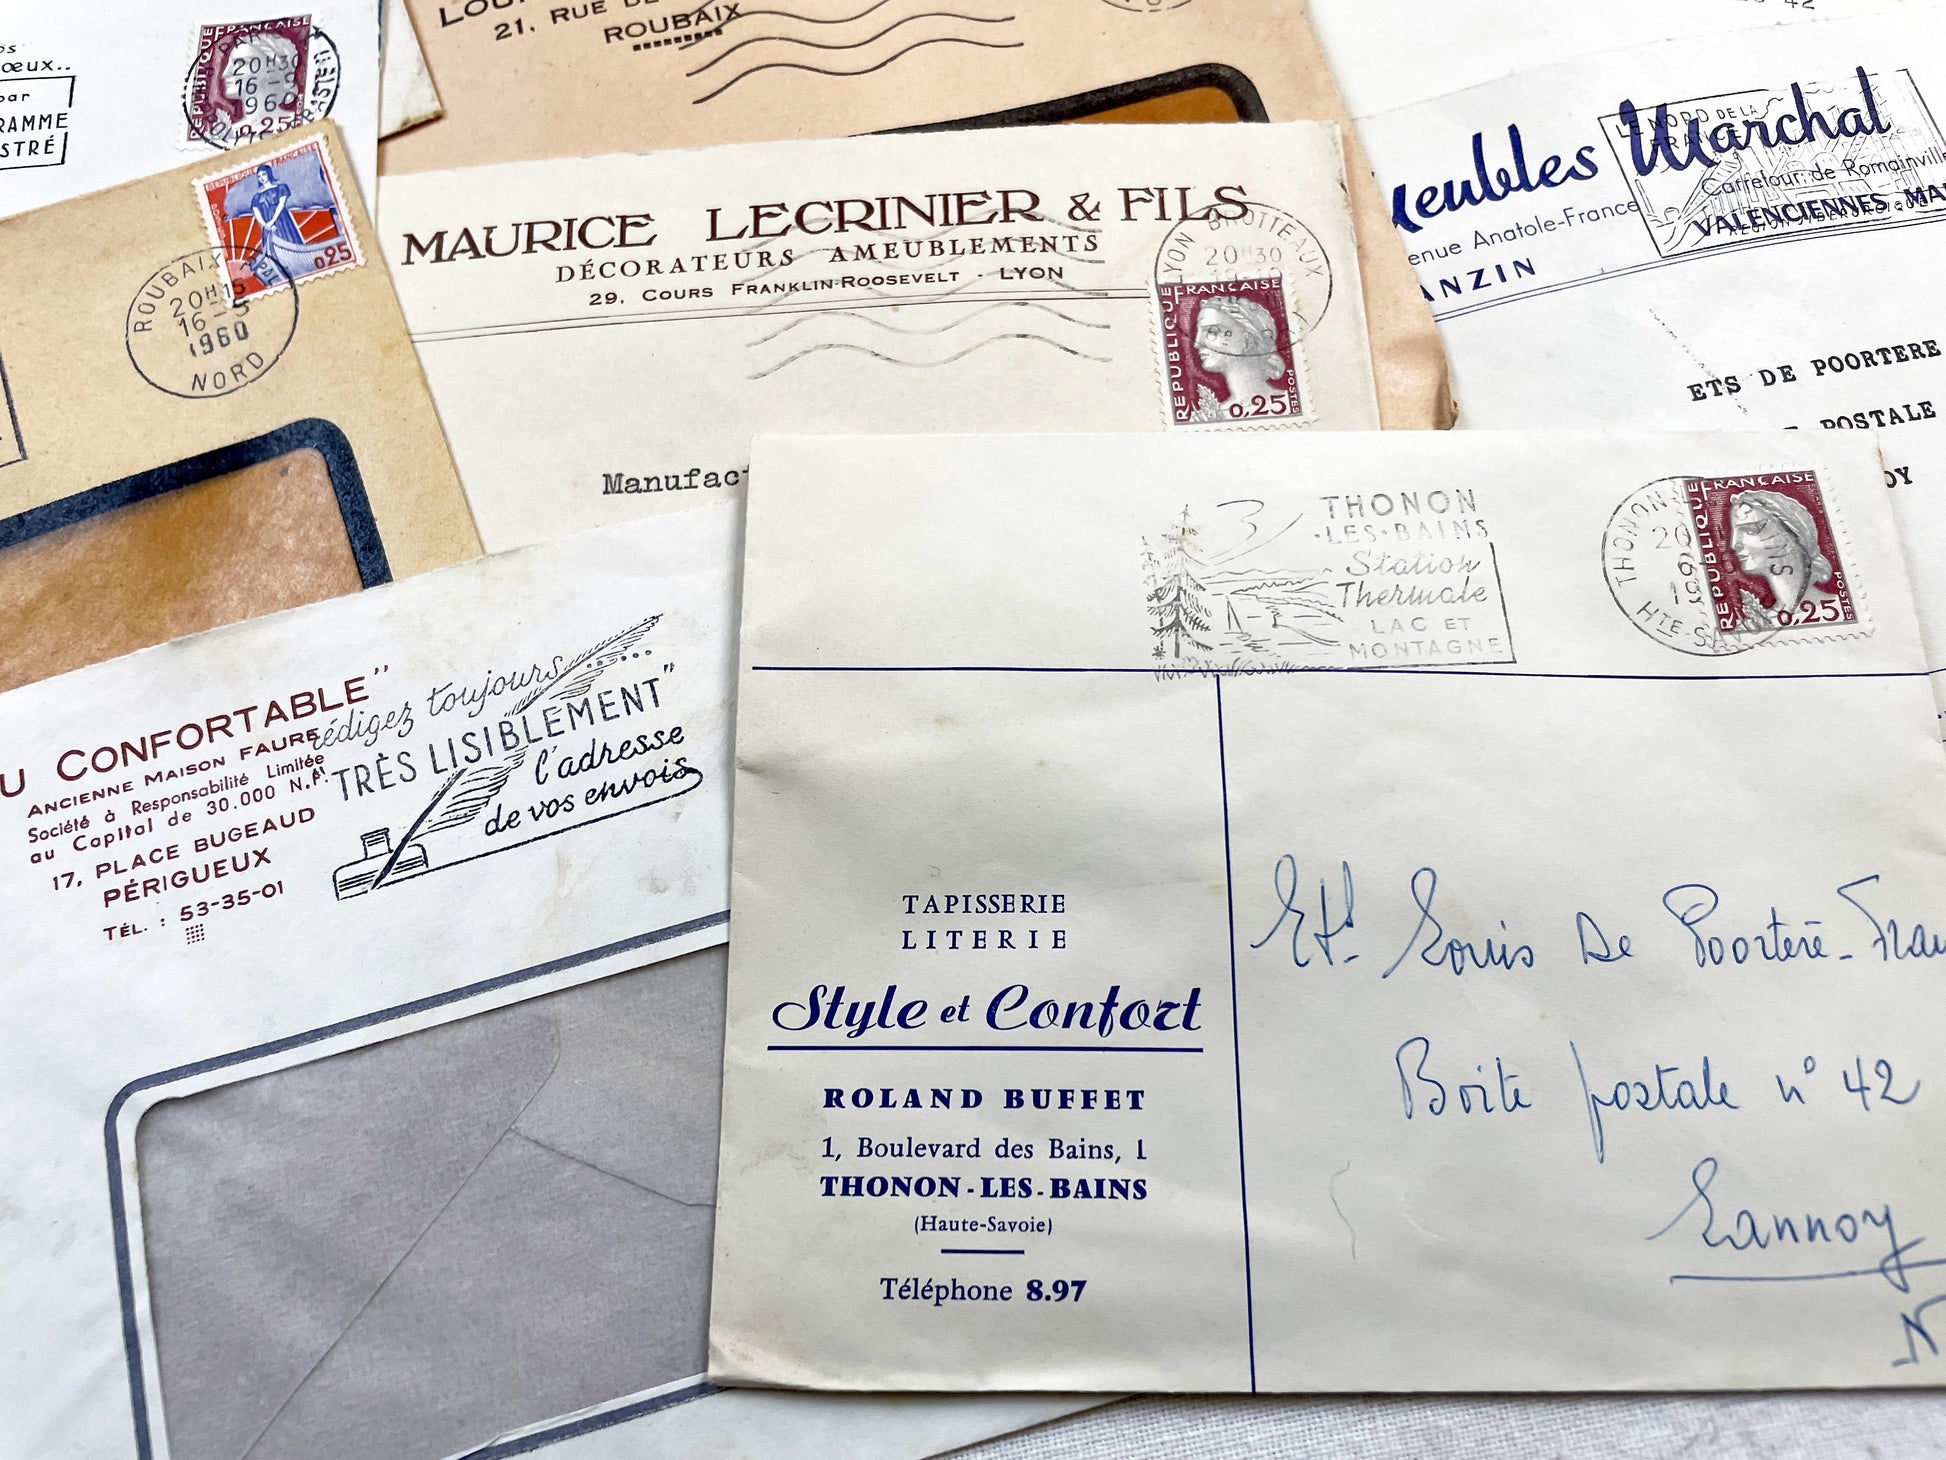 RÉPUBLIQUE FRANÇAISE
20H30
16-9
1960
0,25
œux..
par
RAMME
STRÉ
21, RUE DE
ROUBAIX
42
RÉPUBLIQUE FRANÇAISE
0,25
ROUBAIX
20H15
16-5
1960
NORD
MAURICE LECRINIER & FILS
DÉCORATEURS AMEUBLEMENTS
29, COURS FRANKLIN-ROOSEVELT - LYON
LYON BROTTEAUX
20H30
REPUBLIQUE FRANÇAISE
0,25
POSTES
Manufac
LE NORD DE LA
FRANCE
Meubles Marchal
Carrefour de Romainville
enue Anatole-France
VALENCIENNES-MA
ANZIN
ETS DE POORTERE
POSTALE
OY
U CONFORTABLE"
ANCIENNE MAISON FAURE
Société à Responsabilité Limitée
au Capital de 30.000 N.F.
17, PLACE BUGEAUD
PÉRIGUEUX
TÉL. : 53-35-01
rédigez toujours......
"TRÈS LISIBLEMENT"
l'adresse
de vos envois
THONON
-LES-BAINS
Station
Thermale
LAC ET
MONTAGNE
THONON
BAINS
HTE-SAVOIE
REPUBLIQUE FRANÇAISE
0,25
POSTES
TAPISSERIE
LITERIE
Style et Confort
ROLAND BUFFET
1, Boulevard des Bains, 1
THONON-LES-BAINS
(Haute-Savoie)
Téléphone 8.97
Ets. Louis De Poortere - Frau
Boite postale n° 42
Lannoy
N